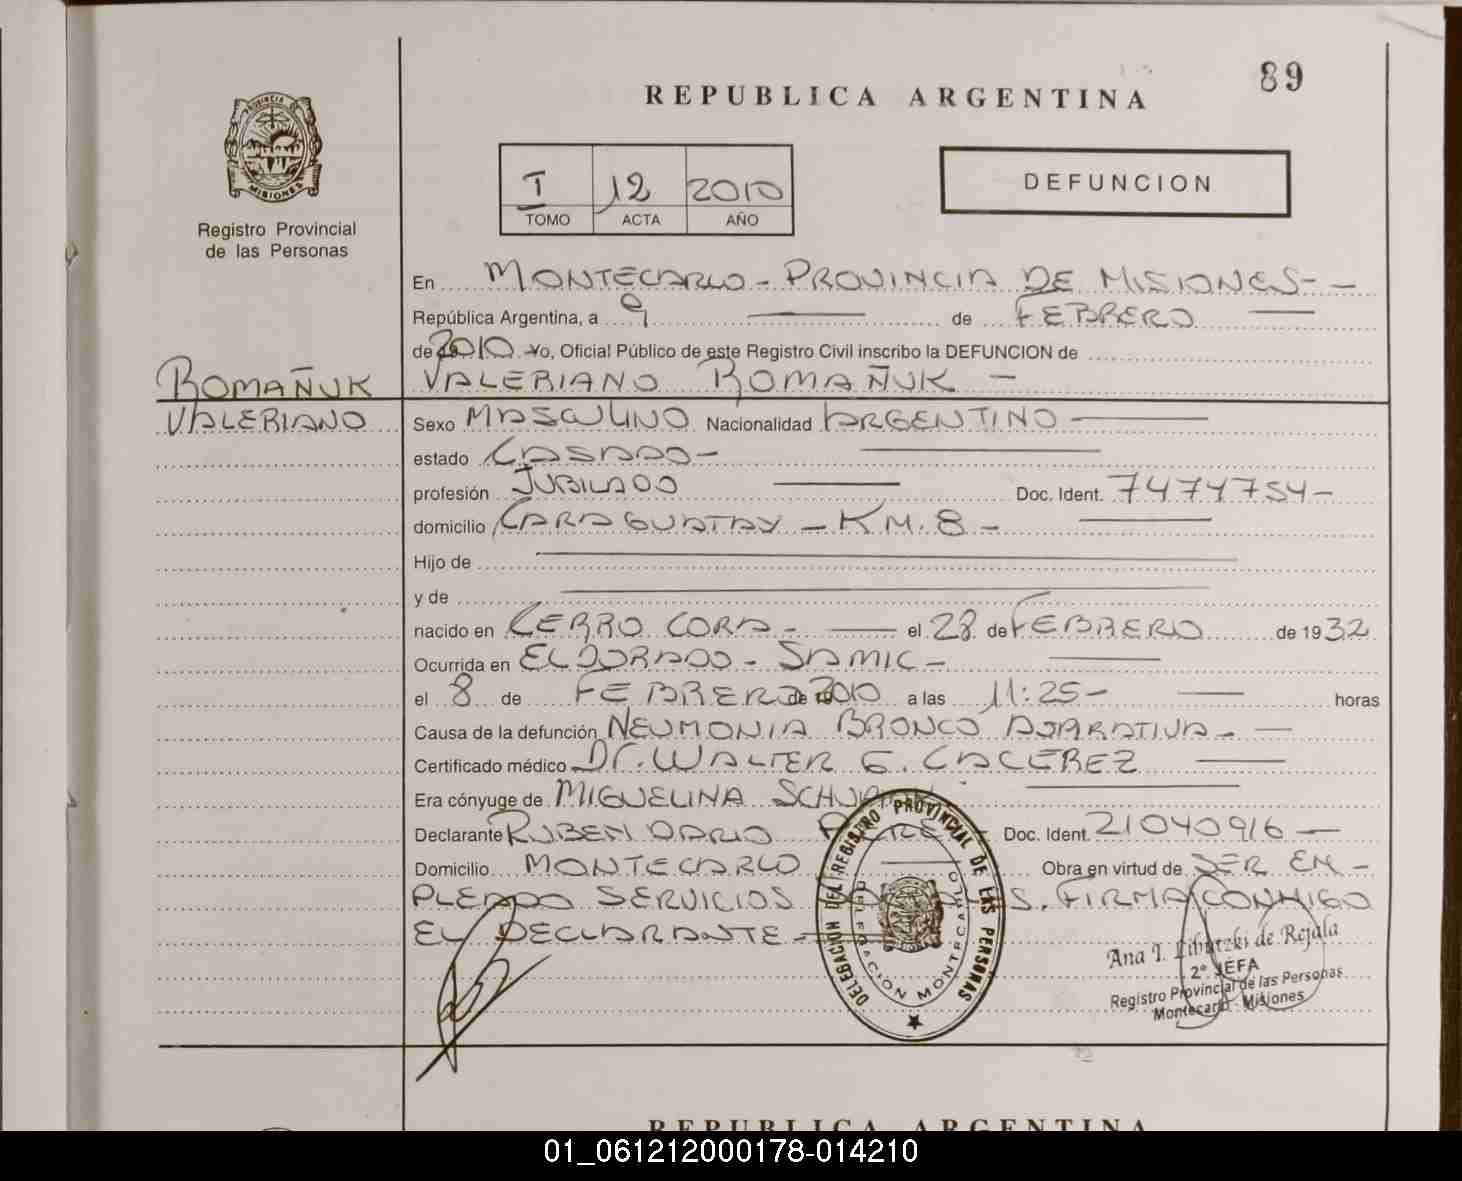 89
REPUBLICA ARGENTINA
I 12 2010
TOMO ACTA AÑO
DEFUNCION
PROVINCIA DE MISIONES
Registro Provincial
de las Personas
En MONTECARLO - PROVINCIA DE MISIONES - -
República Argentina, a 9 de FEBRERO
de 2010 Yo, Oficial Público de este Registro Civil inscribo la DEFUNCION de
VALERIANO ROMAÑUK -
ROMAÑUK
VALERIANO
Sexo MASCULINO Nacionalidad ARGENTINO
estado CASADO -
profesión JUBILADO Doc. Ident. 7474754 -
domicilio CARAGUATAY - KM. 8 -
Hijo de
y de
nacido en CERRO CORA - el 28 de FEBRERO de 1932
Ocurrida en ELDORADO - SAMIC -
el 8 de FEBRERO de 2010 a las 11:25 - horas
Causa de la defunción NEUMONIA BRONCO ASPIRATIVA -
Certificado médico Dr. WALTER G. CACEREZ
Era cónyuge de MIGUELINA
Declarante RUBEN DARIO Doc. Ident. 21040916 -
Domicilio MONTECARLO Obra en virtud de SER EM -
PLEADO SERVICIOS S. FIRMA CONMIGO
EL DECLARANTE -
DELEGACION DEL REGISTRO PROVINCIAL DE LAS PERSONAS
DELEGACION MONTECARLO
Ana I. Libutzki de Rejala
2° JEFA
Registro Provincial de las Personas
Montecarlo - Misiones
REPUBLICA ARGENTINA
01_061212000178-014210